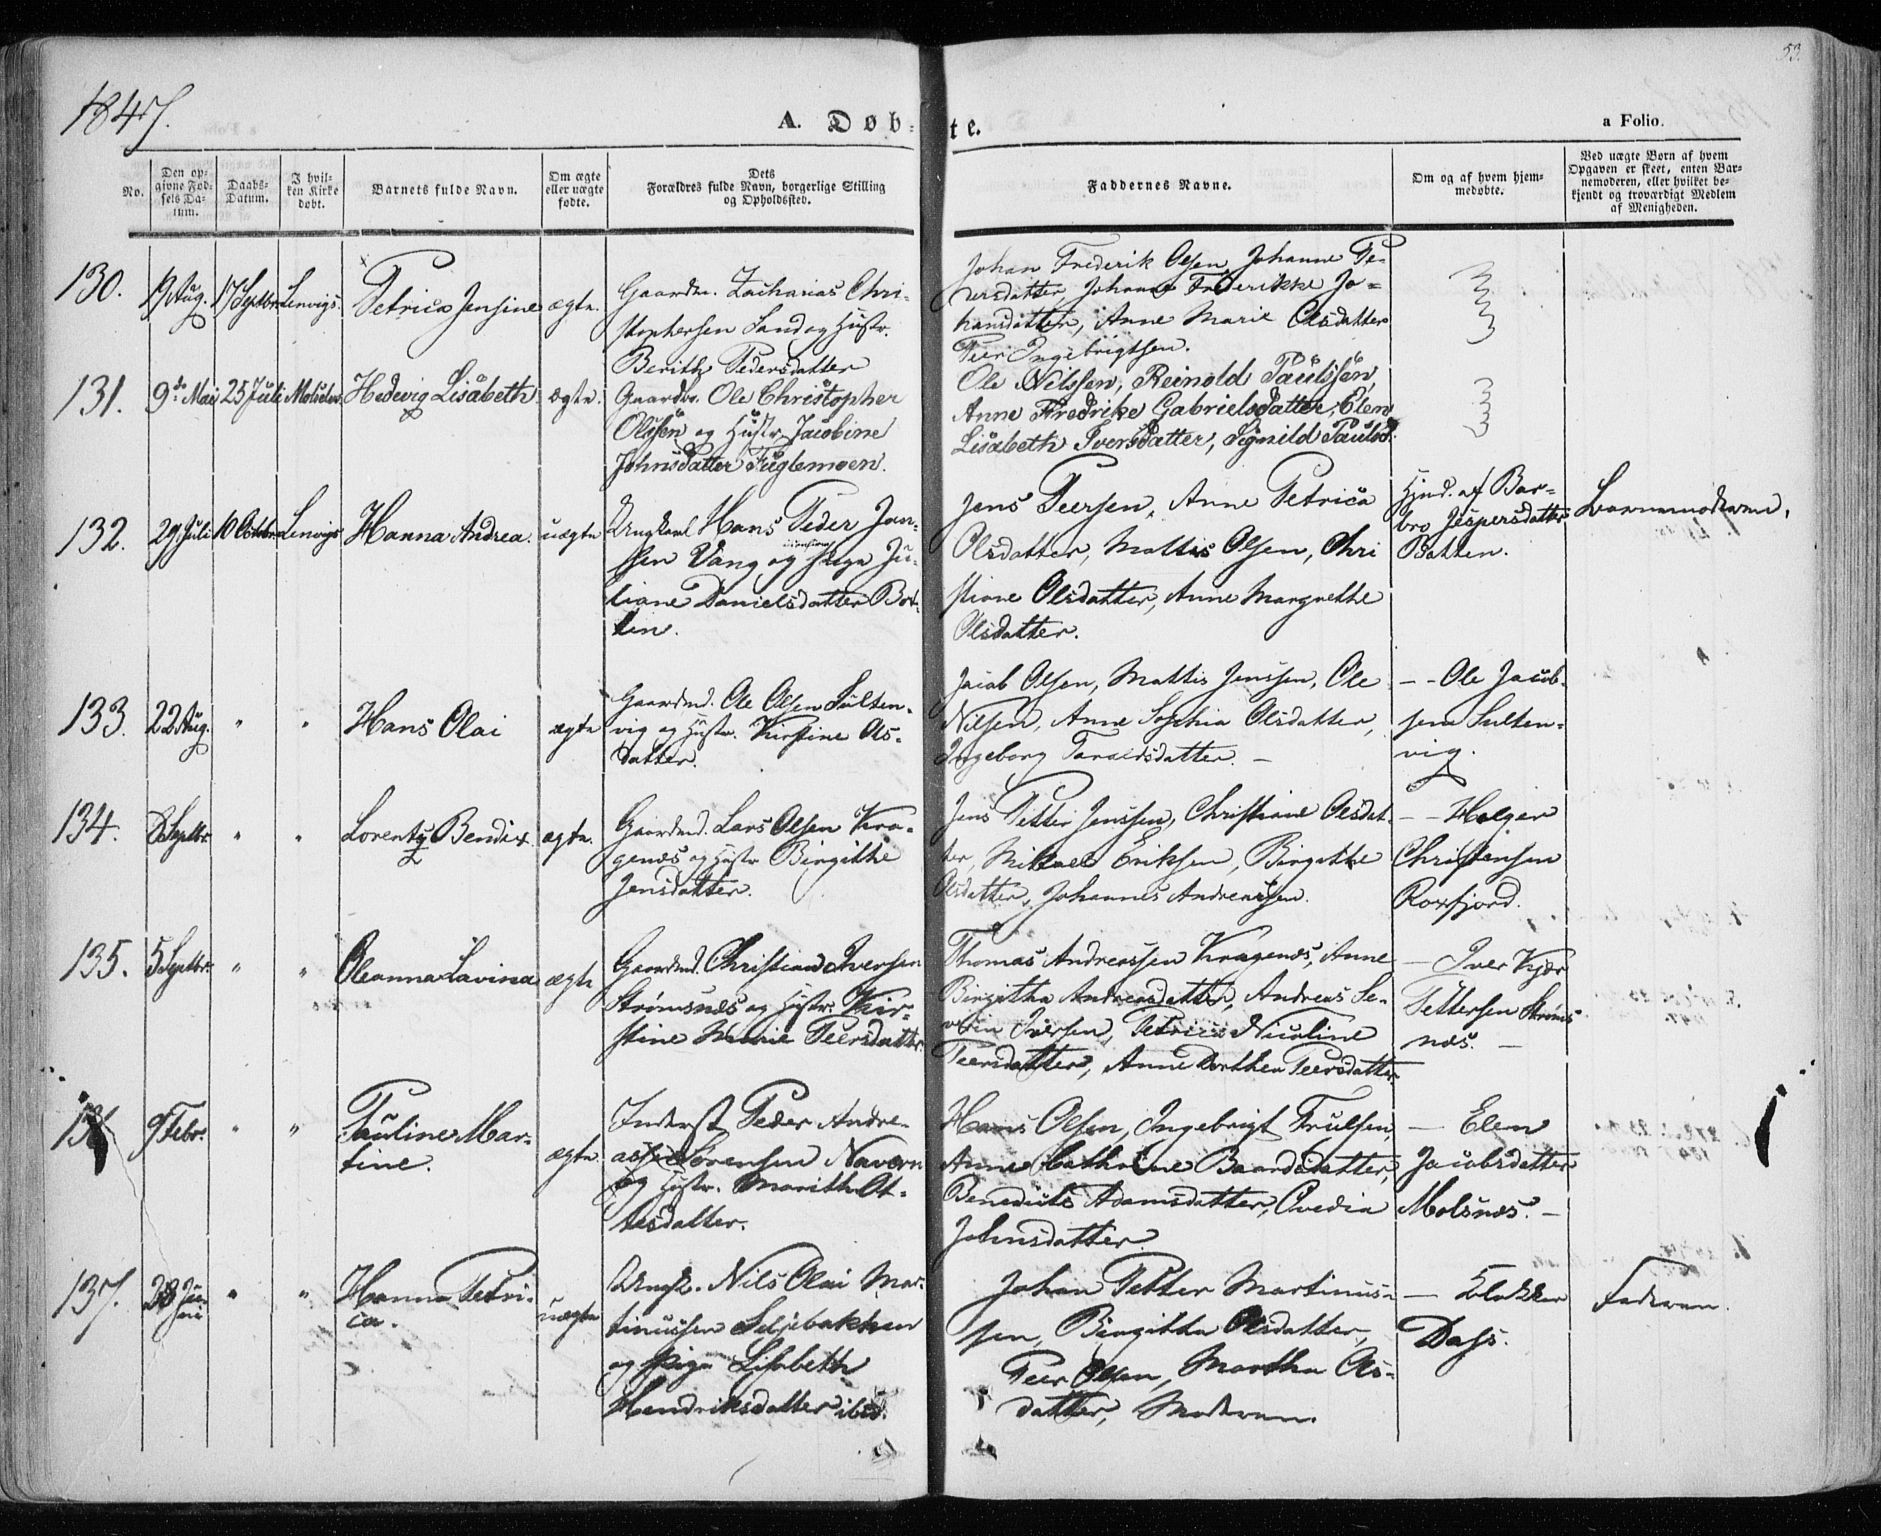 53.
1847.
A. Døbte.
a Folio.
No.
Den opgivne Fødsels Datum.
Daabs-Datum.
I hvilken Kirke døbt.
Barnets fulde Navn.
Om ægte eller uægte fødte.
Dets Forældres fulde Navn, borgerlige Stilling og Opholdssted.
Faddernes Navne.
Om og af hvem hjemmedøbte.
Ved uægte Børn af hvem Opgaven er skeet, enten Barnemoderen, eller hvilket bekjendt og troværdigt Medlem af Menigheden.
130.
19 Aug.
17 Septbr
Lenvigs.
Petrica Jensine
ægte.
Gaardm. Zacharias Chri-
stophersen Sand og Hustr.
Berith Pedersdatter
Johan Frederik Olsen, Johanne Pe-
dersdatter, Johanne Frederikke Jo-
hansdatter, Anne Marie Olsdatter
Peer Ingebrigtsen.
131.
9de Mai
25 Juli
Hedevig Lisabeth
ægte.
Ole Christopher
Olssen og Hustr. Jacobine
Johnsdatter Fuglemoen.
Ole Nilssen, Reinold Paulssen,
Anne Fredrike Gabrielsdatter, Elen
Lisabeth Iversdatter, Paulsd.
132.
29 Juli
10 Octobr
Lenvigs
Hanna Andrea.
uægte
Ungkarl Hans Peder Jan-
sen Vang og Pige Ju-
liane Danielsdatter Bot-
ten.
Jens Peersen, Anne Petrica
Olsdatter, Mattis Olsen, Chri
stiane Olsdatter, Anne Margrethe
Olsdatter.
Hjmd. af Bar-
bro Jespersdatter
Botten.
Barnemoderen.
133.
22 Aug.
"
"
Hans Olai
ægte
Gaardmd. Ole Olsen Sulten-
vig og Hustr. Kirstine Ols-
datter.
Jacob Olsen, Mattis Jenssen, Ole
Nilsen, Anne Sophia Olsdatter,
Ingeborg Taraldsdatter. –
– – Ole Jacob-
sen Sulten-
vig.
134.
8 Septbr.
"
"
Lorentz Bendix
ægte.
Gaardmd. Lars Olsen Kra-
genæs og Hustr Birgithe
Jensdatter.
Jens Petter Jenssen, Christiane Olsdat-
ter, Mikael Eriksen, Birgithe
Olsdatter, Johannes Andreassen.
– – Holger
Christensen
Roxfjord.
135.
5 Septbr.
"
"
Oleanna Lavina
ægte
Gaardmd. Christian Iversen
Strømsnæs og Hustr. Kir-
stine Marie Peersdatter
Thomas Andreassen Kragenæs, Anne
Birgitha Andreasdatter, Andreas Se-
verin Iversen, Petrica Nicoline
Peersdatter, Anne Dorthea Peersdatter
– Iver Kjær
Pettersen Strøms-
næs. –
136
9 Febr.
"
"
Pauline Mar-
tine.
ægte
Inderst Peder Andre-
as Sørensen Navern
og Hustr. Marith Ot-
tesdatter.
Hans Olsen, Ingebrigt Trulsen,
Anne Cathrine Baardsdatter,
Benedicte Adamsdatter, Ovedia
Johnsdatter
– Elen
Jacobsdatter
Molsnæs. –
137.
28 Juni
"
"
Hanna Petri-
ca.
uægte
Ungk. Nils Olai Mar-
tinussen Seljebakken
og Pige Lisabeth
Hendriksdatter ibid.
Johan Petter Martinus-
sen, Birgitha Olsdatter,
Peer Olsen, Martha Ols-
datter, Moderen.
– Klokker
Dass.
Faderen.